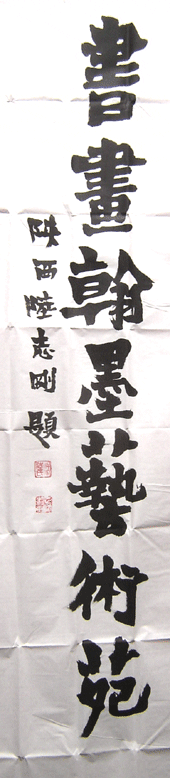 書畫翰墨藝術苑
陝西陸志剛題